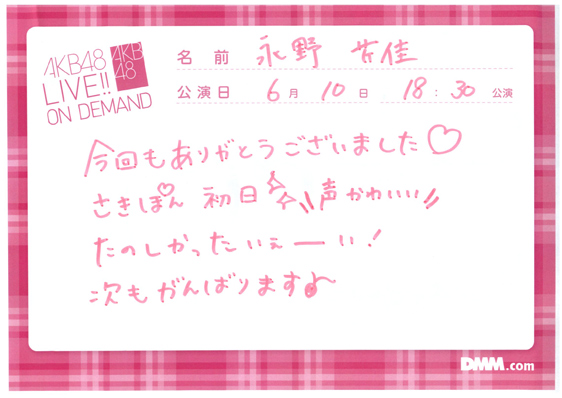 AKB48
LIVE!!
ON DEMAND
AKB
48
名前 永野芹佳
公演日 6月10日 18:30公演
今回もありがとうございました♡
さきぽん初日☆☆\\声かわいい//
たのしかったいぇーい!
次もがんばります♪
DMM.com